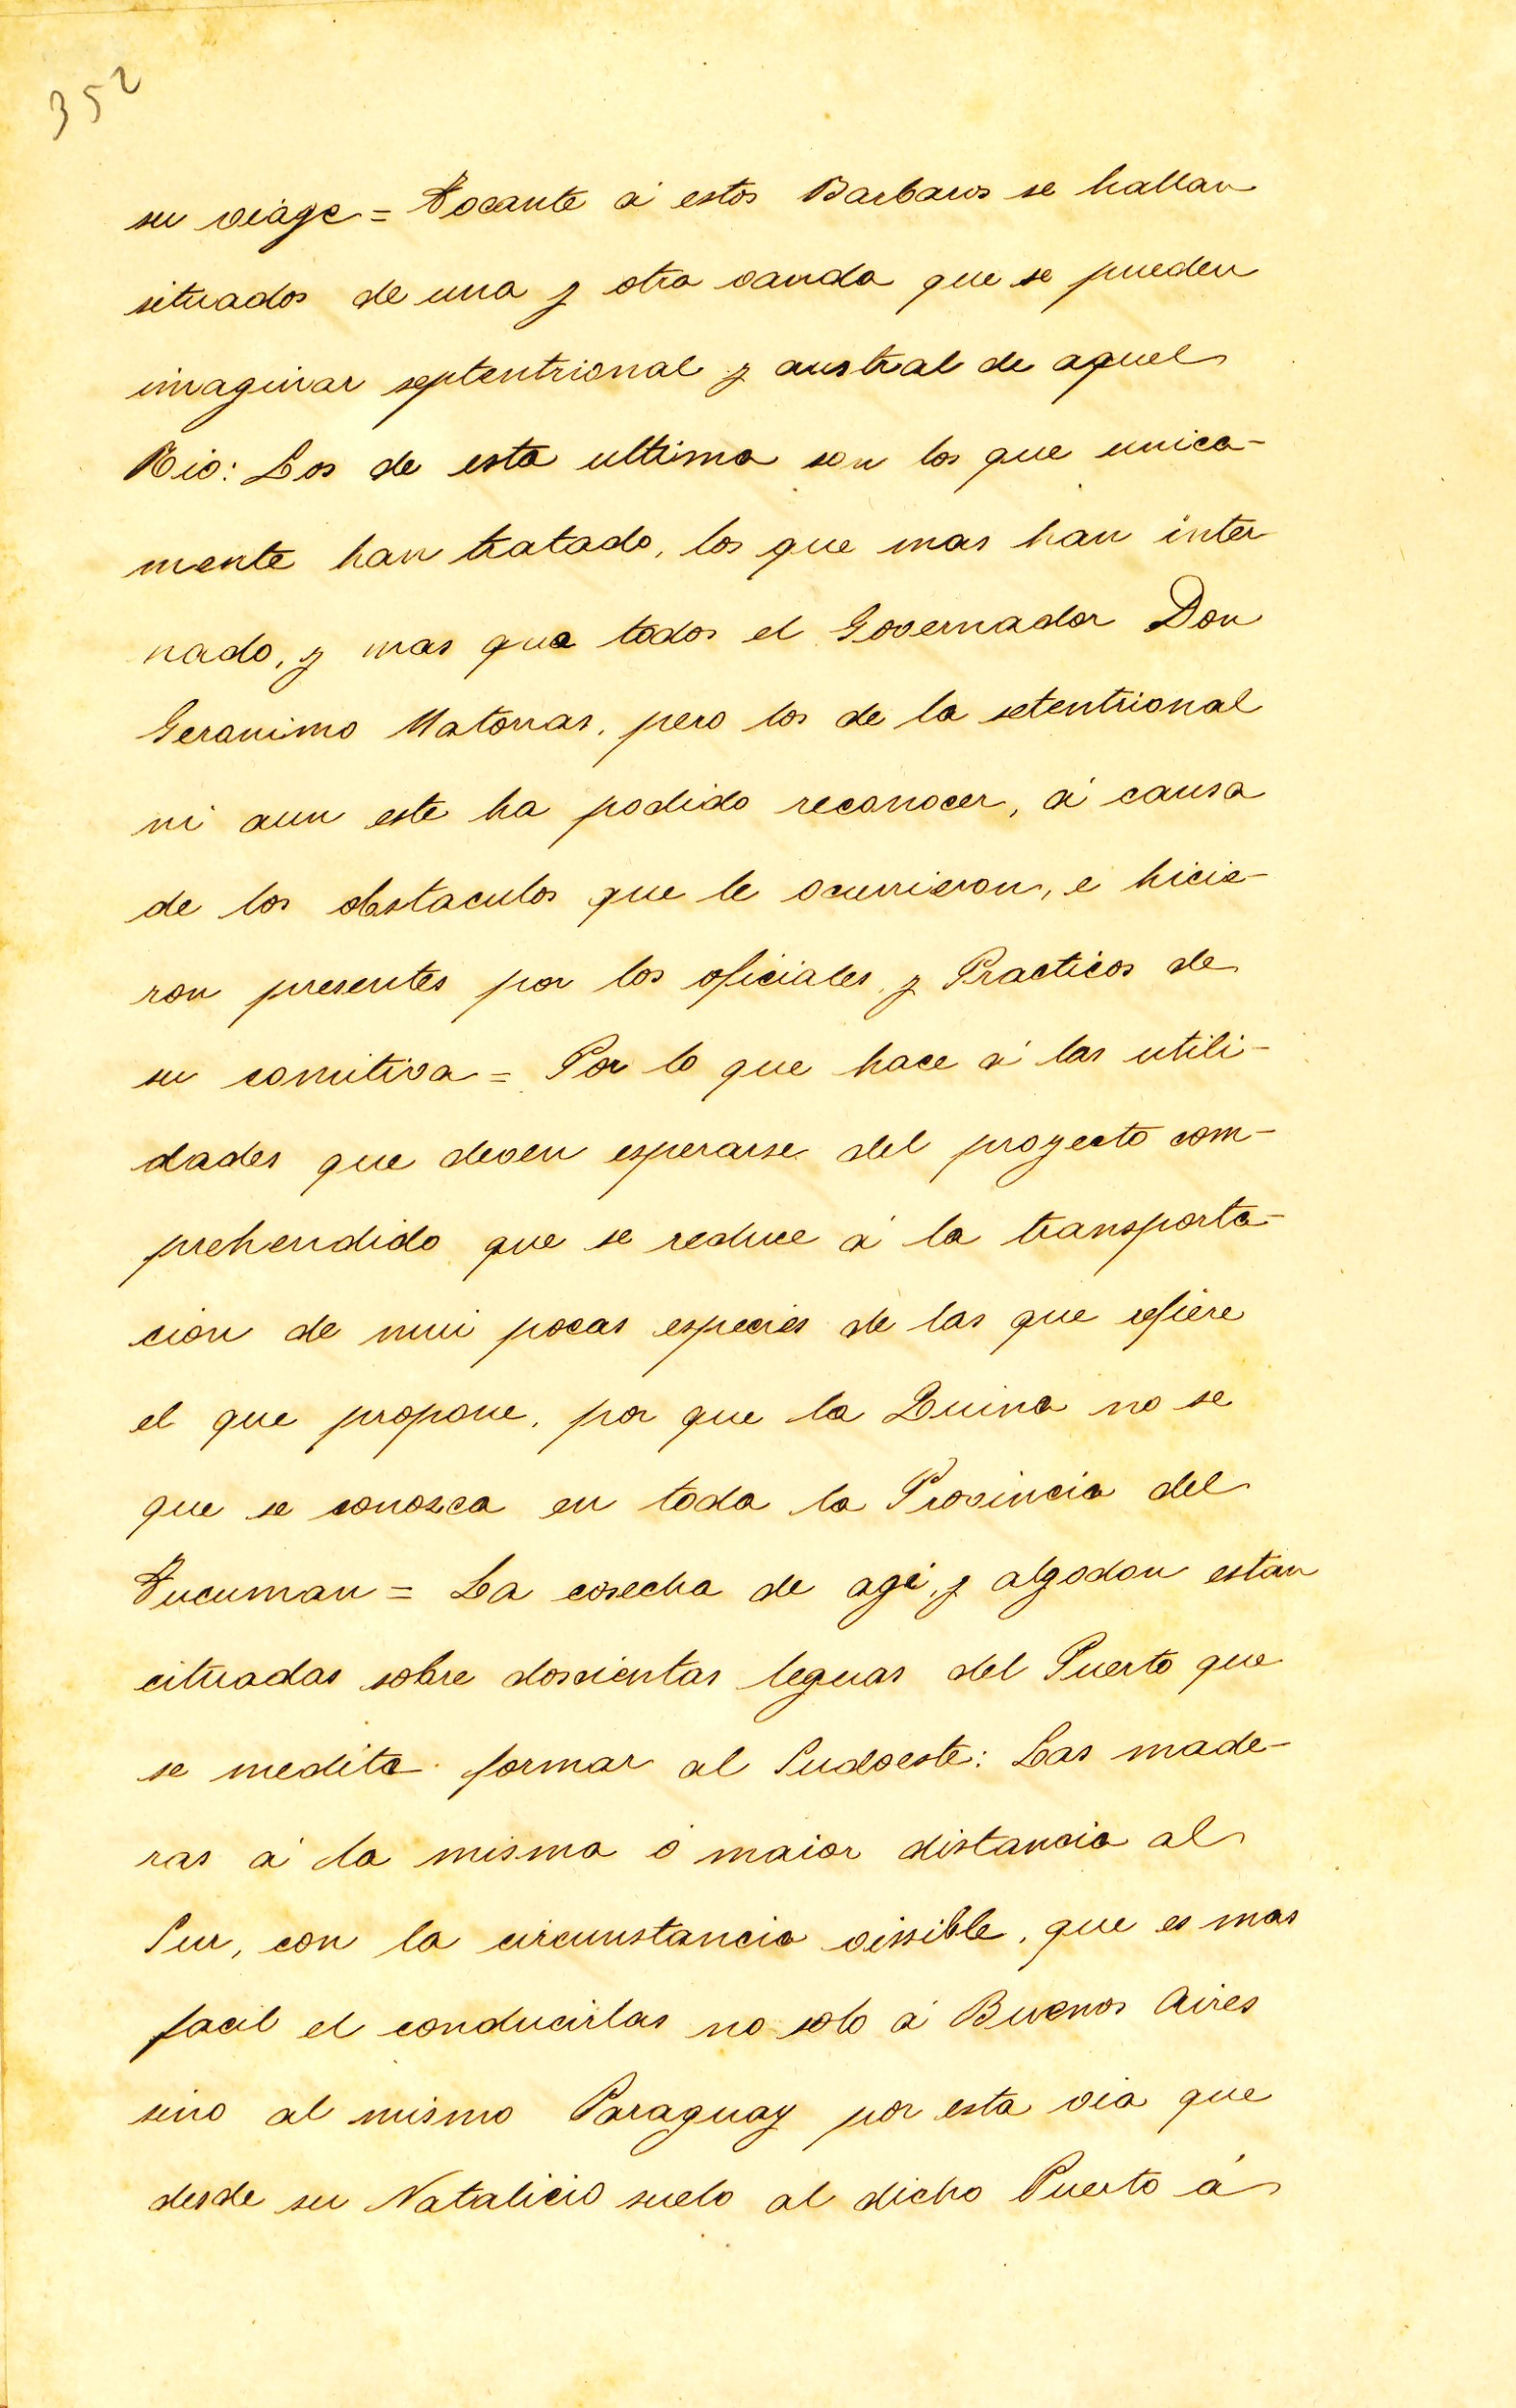 352
su viage = Tocante á estos Barbaros se hallan
situados de una y otra vanda que se pueden
imaginar septentrional y austral de aquel
Rio: Los de esta ultima son los que unica-
mente han tratado, los que mas han inter
nado, y mas que todos el Governador Don
Geronimo Matorras, pero los de la setentrional
ni aun este ha podido reconocer, á causa
de los obstaculos que le ocurrieron, e hicie-
ron presentes por los oficiales y Practicos de
su comitiva = Por lo que hace á las utili-
dades que deven esperarse del proyecto com-
prehendido que se reduce á la transporta-
cion de mui pocas especies de las que refiere
el que propone, por que la Quina no se
que se conosca en toda la Provincia del
Tucuman = La cosecha de agi, y algodon estan
cituadas sobre doscientas leguas del Puerto que
se medita formar al Sudoeste: Las made-
ras á la misma ó maior distancia al
Sur, con la circunstancia vissible, que es mas
facil el conducirlas no solo á Buenos Aires
sino al mismo Paraguay por esta via que
desde su Natalicio suelo al dicho Puerto á